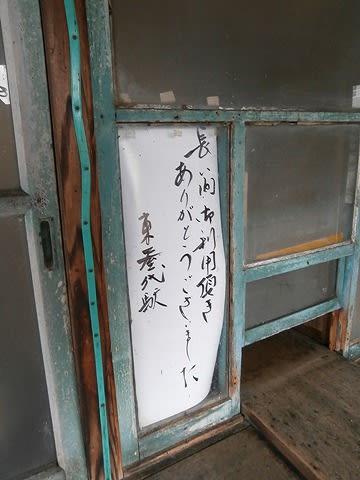 長い間御利用頂き
ありがとうございました
東屋代駅